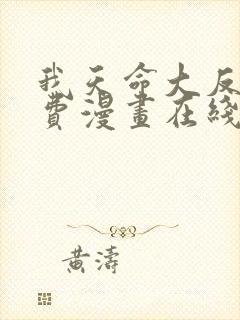 我天命大反
費漫畫在綫
黃濤